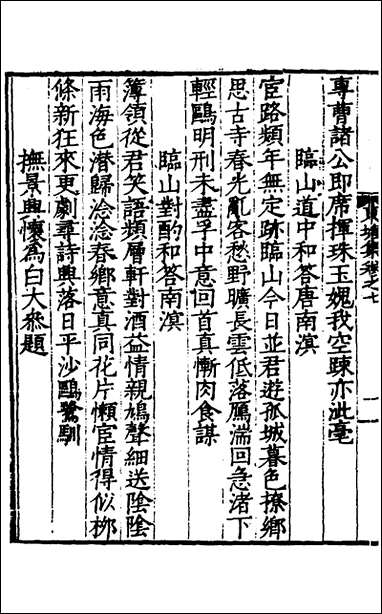 東塘集卷之七
專曹諸公即席揮珠玉媿我空踈亦泚毫
臨山道中和答唐南溟
宦路頻年無定跡臨山今日並君遊孤城暮色撩鄉
思古寺春光亂客愁野曠長雲低落鴈湍回急渚下
輕鷗明刑未盡孚中意回首真慚肉食謀
臨山對酌和答南溟
簿領從君笑語頻層軒對酒益情親鳩聲細送陰陰
雨海色潛歸淰淰春鄉意真同花片懶宦情得似栁
條新狂來更劇尋詩興落日平沙鷗鷺馴
撫景興懷為白大叅題